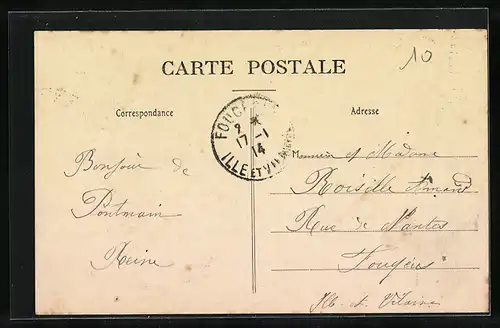 10
CARTE POSTALE
Correspondance
Adresse
FOUGÈRES
2 *
17-1
14
ILLE ET VILAINE
Bonjour de
Pontmain
Reine
Monsieur et Madame
Roisille Armand
Rue de Nantes
Fougères
Ille-et-Vilaine